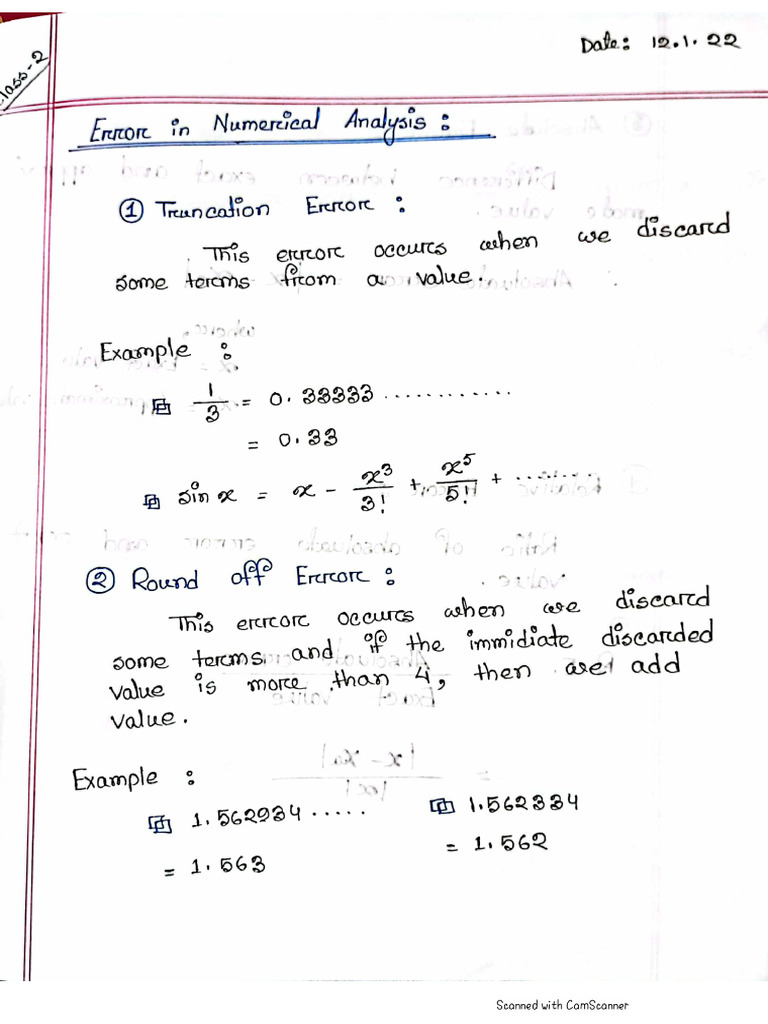 Class-2
Date: 12.1.22
Error in Numerical Analysis:
① Truncation Error:
This error occurs when we discard
some terms from a value.
Example:
1/3 = 0.33333............
= 0.33
sin x = x - x³/3! + x⁵/5! + ........
② Round off Error:
This error occurs when we discard
some terms and if the immidiate discarded
value is more than 4, then we add
value.
Example:
1.562934.....
= 1.563
1.562334
= 1.562
Scanned with CamScanner